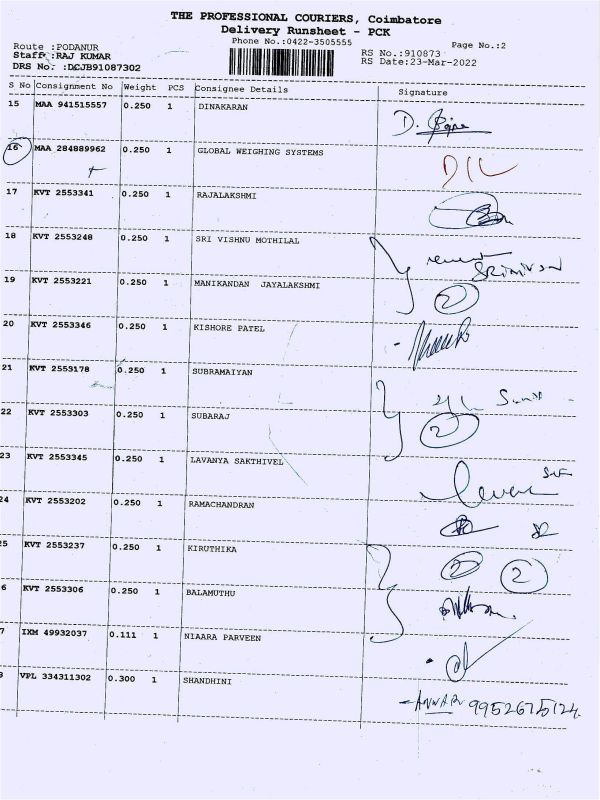 THE PROFESSIONAL COURIERS, Coimbatore
Delivery Runsheet - PCK
Phone No.:0422-3505555
Page No.:2
Route :PODANUR
Staff :RAJ KUMAR
DRS No. :DCJB91087302
RS No.:910873
RS Date:23-Mar-2022
S No Consignment No Weight PCS Consignee Details Signature
15 MAA 941515557 0.250 1 DINAKARAN
16 MAA 284889962 0.250 1 GLOBAL WEIGHING SYSTEMS
17 KVT 2553341 0.250 1 RAJALAKSHMI
18 KVT 2553248 0.250 1 SRI VISHNU MOTHILAL
19 KVT 2553221 0.250 1 MANIKANDAN JAYALAKSHMI 2
20 KVT 2553346 0.250 1 KISHORE PATEL
21 KVT 2553178 0.250 1 SUBRAMAIYAN
22 KVT 2553303 0.250 1 SUBARAJ 2
23 KVT 2553345 0.250 1 LAVANYA SAKTHIVEL
24 KVT 2553202 0.250 1 RAMACHANDRAN
25 KVT 2553237 0.250 1 KIRUTHIKA 2 2
6 KVT 2553306 0.250 1 BALAMUTHU
7 IXM 49932037 0.111 1 NIAARA PARVEEN
8 VPL 334311302 0.300 1 SHANDHINI - ANWAR 9952675124